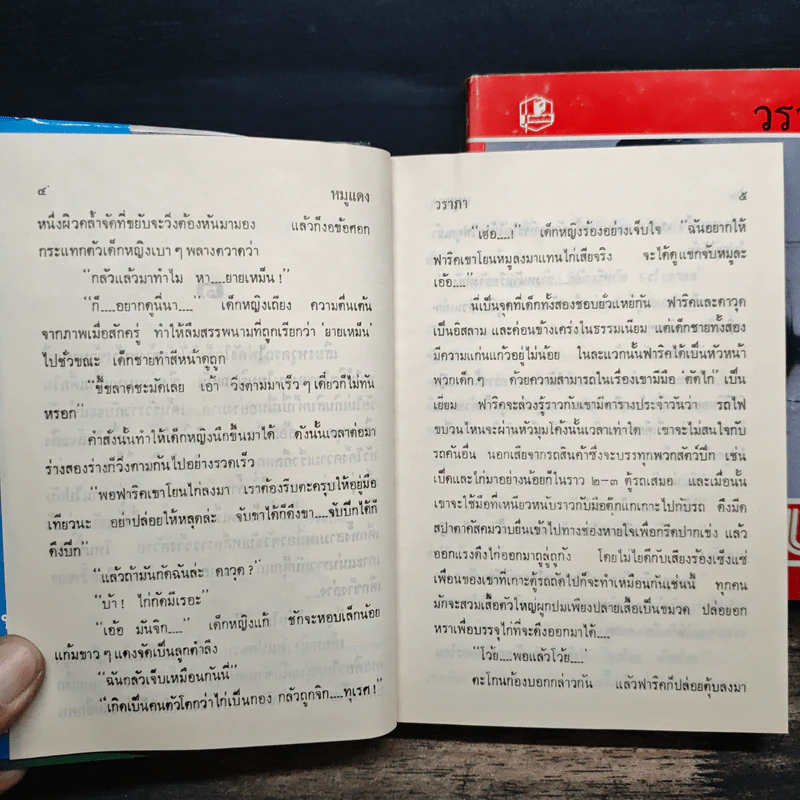 ๔ หมูแดง
หนึ่งผิวคล้ำจัดที่ขยับจะวิ่งต้องหันมามอง แล้วก็งอข้อศอก
กระแทกตัวเด็กหญิงเบา ๆ พลางตวาดว่า
“กลัวแล้วมาทำไม หา....ยายเหม็น !”
“ก็....อยากดูนี่นา....” เด็กหญิงเถียง ความตื่นเต้น
จากภาพเมื่อสักครู่ ทำให้ลืมสรรพนามที่ถูกเรียกว่า ‘ยายเหม็น’
ไปชั่วขณะ เด็กชายทำสีหน้าดูถูก
“ขี้ขลาดชะมัดเลย เอ้า วิ่งตามมาเร็ว ๆ เดี๋ยวก็ไม่ทัน
หรอก”
คำสั่งนั้นทำให้เด็กหญิงนึกขึ้นมาได้ ดังนั้นเวลาต่อมา
ร่างสองร่างก็วิ่งตามกันไปอย่างรวดเร็ว
“พอฟาริคเขาโยนไก่ลงมา เราต้องรีบตะครุบให้อยู่มือ
เทียวนะ อย่าปล่อยให้หลุดล่ะ จับขาได้ก็ดึงขา....จับปีกได้ก็
ดึงปีก”
“แล้วถ้ามันกัดฉันล่ะ ดาวุด ?”
“บ้า ! ไก่กัดมีเรอะ”
“เอ้อ มันจิก....” เด็กหญิงแก้ ชักจะหอบเล็กน้อย
แก้มขาว ๆ แดงจัดเป็นลูกตำลึง
“ฉันกลัวเจ็บเหมือนกันนี่”
“เกิดเป็นคนตัวโตกว่าไก่เป็นกอง กลัวถูกจิก....ทุเรศ !”
วราภา ๕
“เฮ่อ....!” เด็กหญิงร้องอย่างเจ็บใจ “ฉันอยากให้
ฟาริคเขาโยนหมูลงมาแทนไก่เสียจริง จะได้ดูแขกจับหมูละ
เอ้อ....”
นี่เป็นจุดที่เด็กทั้งสองชอบยั่วแหย่กัน ฟาริคและดาวุด
เป็นอิสลาม และค่อนข้างเคร่งในธรรมเนียม แต่เด็กชายทั้งสอง
มีความแก่นแก้วอยู่ไม่น้อย ในละแวกนั้นฟาริคได้เป็นหัวหน้า
พวกเด็ก ๆ ด้วยความสามารถในเรื่องเขามีมือ ‘ตัดไก่’ เป็น
เยี่ยม ฟาริคจะล่วงรู้ราวกับเขามีตารางประจำวันว่า รถไฟ
ขบวนไหนจะผ่านหัวมุมโค้งนั้นเวลาเท่าใด เขาจะไม่สนใจกับ
รถคันอื่น นอกเสียจากรถสินค้าซึ่งจะบรรทุกพวกสัตว์ปีก เช่น
เป็ดและไก่มาอย่างน้อยก็ในราว ๒–๓ ตู้รถเสมอ และเมื่อนั้น
เขาจะใช้มือที่เหนียวหนับราวกับมือตุ๊กแกเกาะไปกับรถ ดึงมีด
สปาตาคัสคมวาบยื่นเข้าไปทางช่องหายใจเพื่อกรีดปากเข่ง แล้ว
ออกแรงดึงไก่ออกมาถูลู่ถูกัง โดยไม่ไยดีกับเสียงร้องเซ็งแซ่
เพื่อนของเขาที่เกาะตู้รถถัดไปก็จะทำเหมือนกันเช่นนี้ ทุกคน
มักจะสวมเสื้อตัวใหญ่ผูกปมเพียงปลายเสื้อเป็นขมวด ปล่อยอก
หราเพื่อบรรจุไก่ที่จะดึงออกมาได้....
“โว้ย....พอแล้วโว้ย....’
ตะโกนก้องบอกกล่าวกัน แล้วฟาริคก็ปล่อยตุ้บลงมา